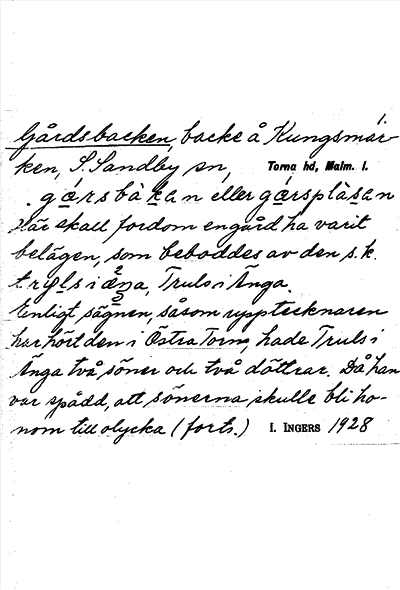 1.
Gårdsbacken, backe å Kungsmar-
ken, S. Sandby sn, Torna hd, Malm. l.
gársbàkan eller gársplàsan
Här skall fordom en gård ha varit
belägen, som beboddes av den s.k.
Truls i Änga.
Enligt sägnen, såsom upptecknaren
har hört den i Östra Torn, hade Truls i
Änga två söner och två döttrar. Då han
var spådd, att sönerna skulle bli ho-
nom till olycka (forts.) I. INGERS 1928